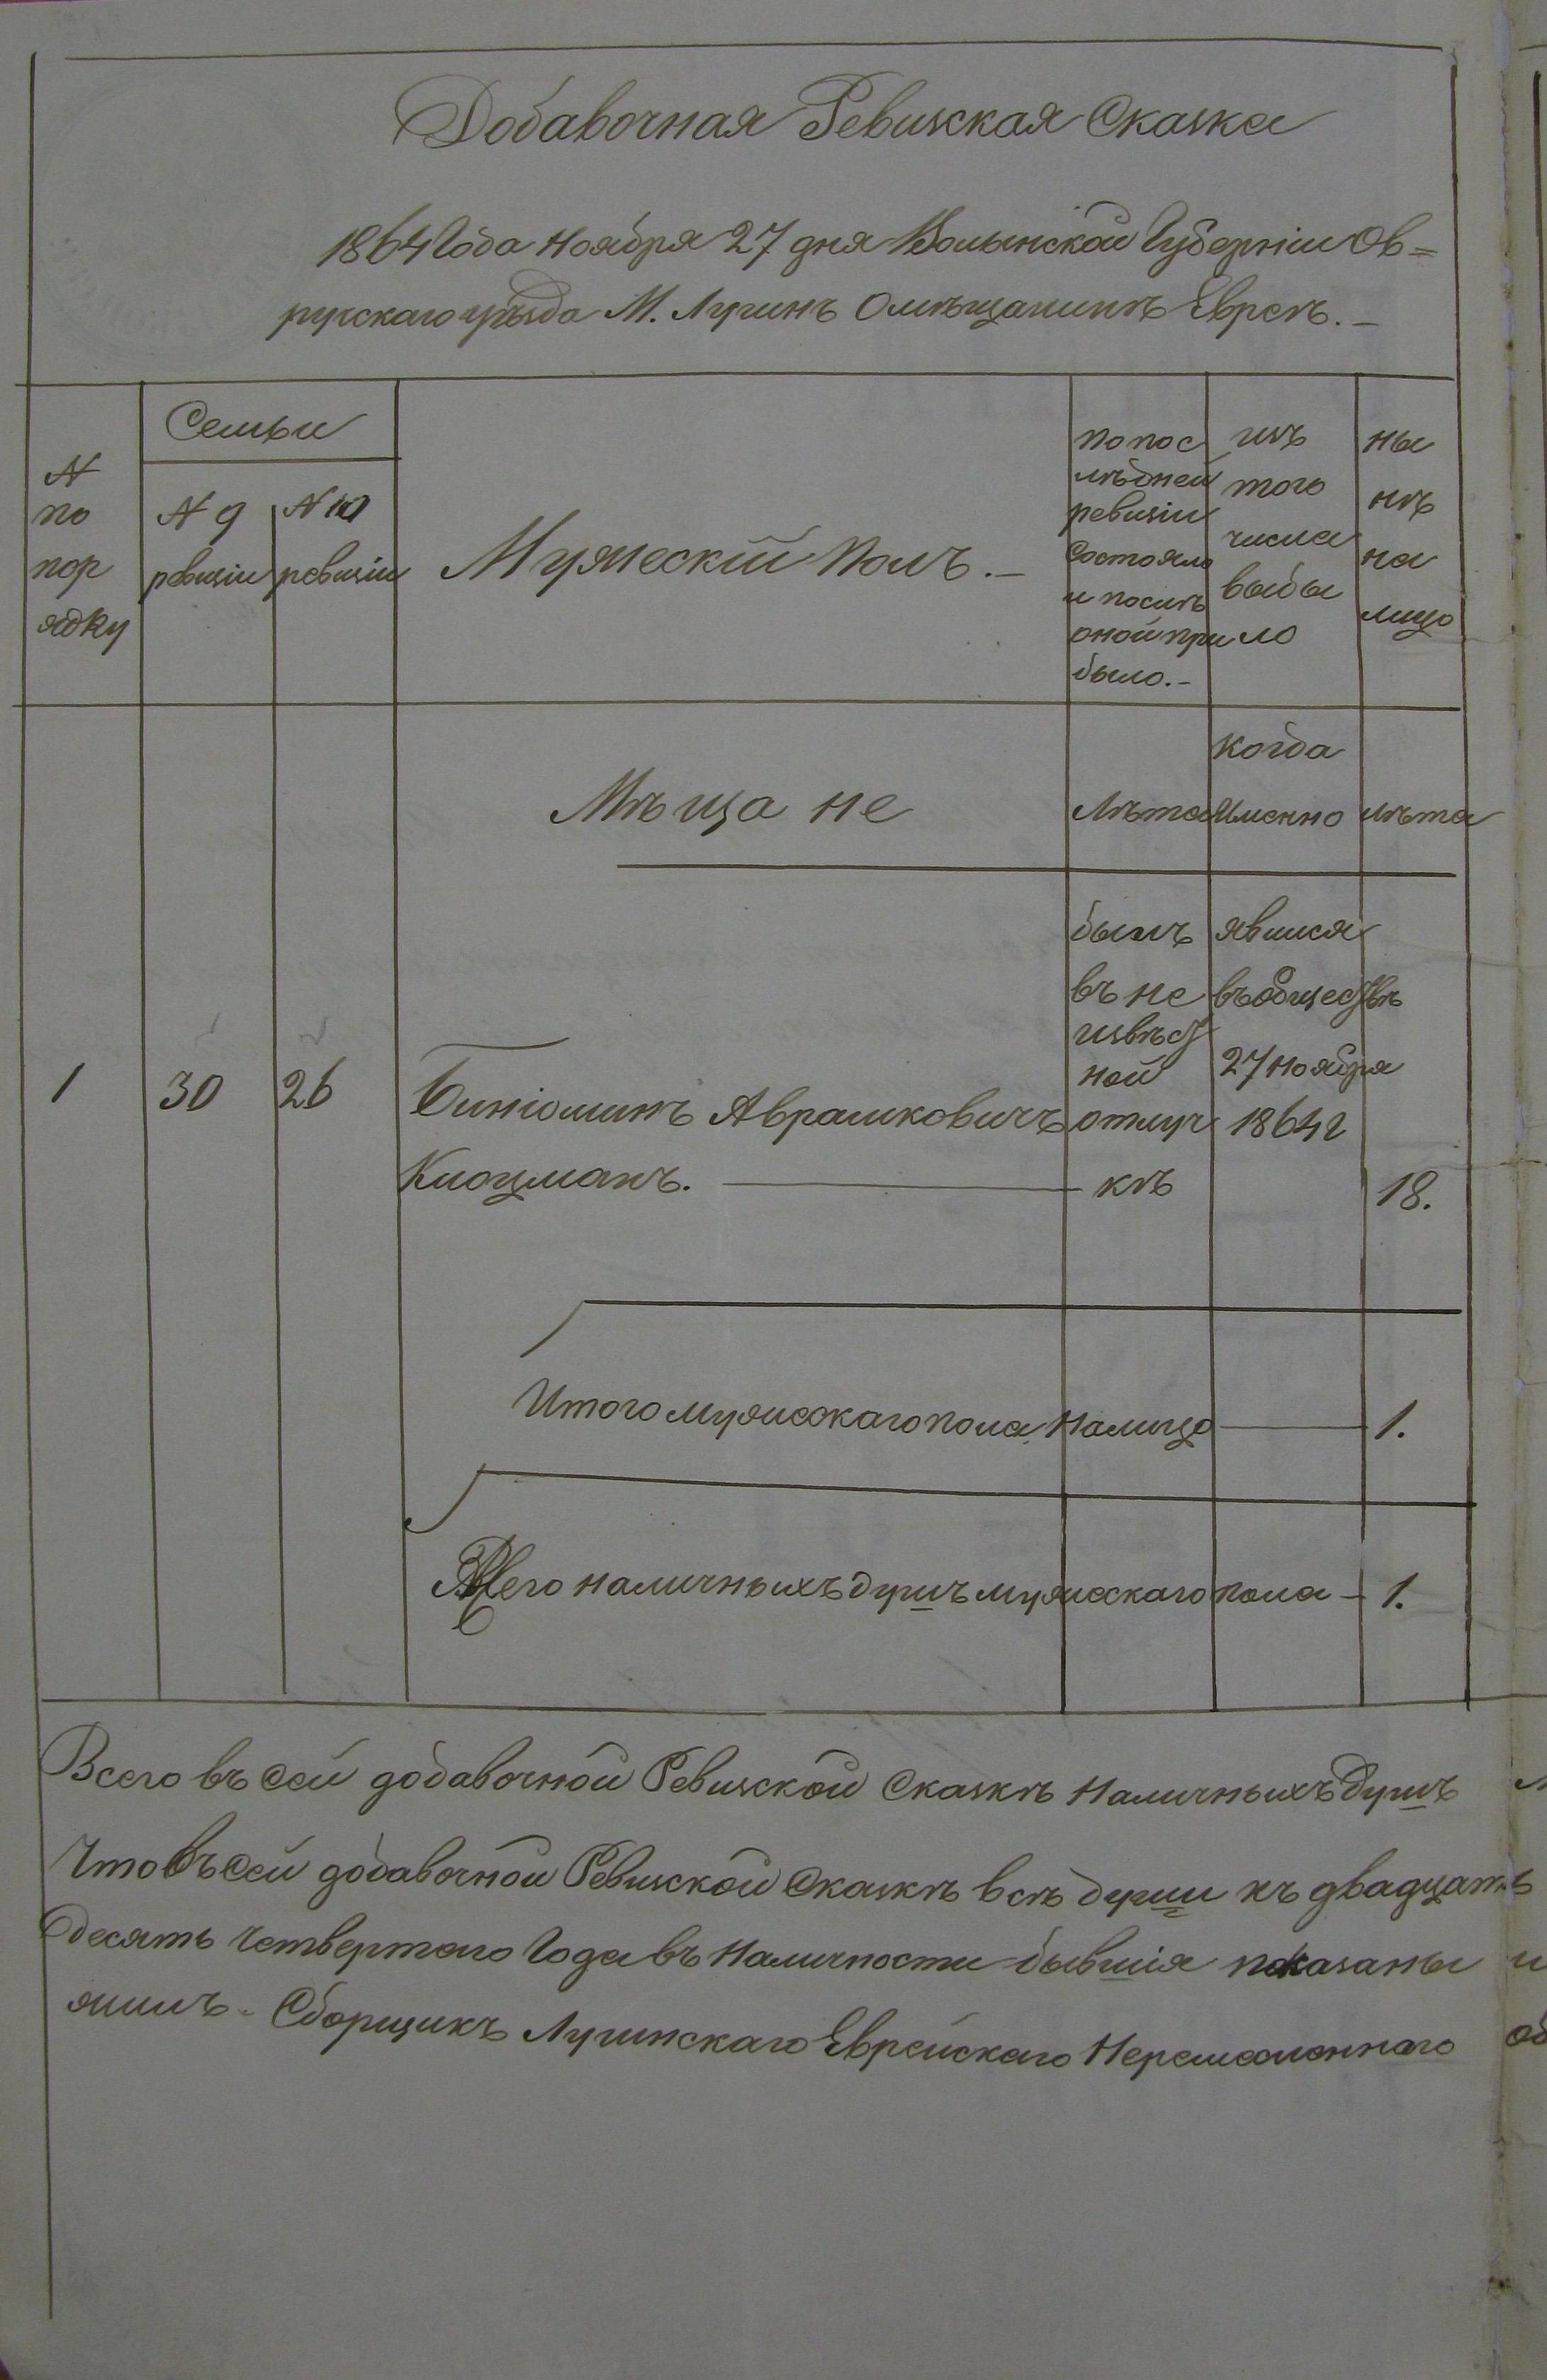 Добавочная Ревизская Сказка
1864 Года Ноября 27 дня Волынской Губернiи Ов=
ручскаго уѣзда М. Лугинъ О мѣщанинѣ Евреѣ.–
N по пор ядку
Семьи
N 9 ревизiи
N 10 ревизiи
Мужескiй Полъ.–
По пос лѣдней ревизiи состояло и послѣ оной при было.–
изъ того числа выбы ло
Ны нѣ на лицо
Мѣща не
Лѣта
Когда Именно
лѣта
1
30
26
Бинiоминъ Аврамковичъ
Клоцманъ.
былъ въ не извѣст ной отлуч кѣ
явился въ обществѣ 27 Ноября 1864 г
18.
Итого мужескаго пола Налицо 1.
Всего наличныхъ душъ мужескаго пола – 1.
Всего въ Сей добавочной Ревизской Сказкѣ Наличныхъ Душъ
Что въ Сей добавочной Ревизской Сказкѣ всѣ души къ двадцать
десять Четвертого Года въ Наличности бывшiя показаны и
Сборщикъ Лугинскаго Еврейскаго Неремесленнаго об